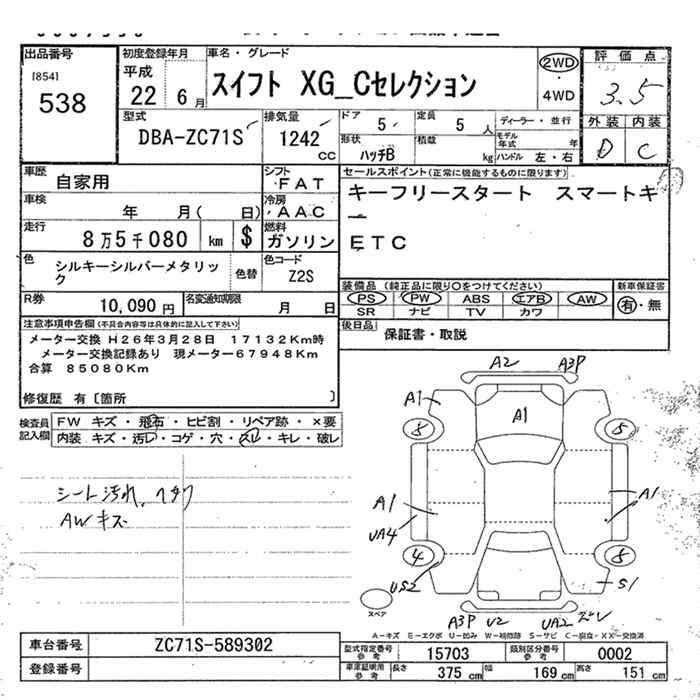 出品番号
[854]
538
初度登録年月
平成
22 6 月
車名・グレード
スイフト XG_Cセレクション
2WD
4WD
評価点
3.5
外装 内装
D C
型式
DBA-ZC71S
排気量
1242
CC
ドア
5
定員
5 人
形状
ハッチB
積載
kg
ディーラー・並行
モデル年式 年
ハンドル 左・右
車歴
自家用
シフト
FAT
車検
年 月( 日)
冷房
AAC
走行
8万5千080 km $
燃料
ガソリン
色
シルキーシルバーメタリック
色替
色コード
Z2S
R券
10,090円
名変通知期限
月 日
セールスポイント(正常に機能するものに限ります)
キーフリースタート スマートキ
ー
ETC
装備品(純正品に限り○をつけてください)
新車保証書
PS PW ABS エアB AW
SR ナビ TV カワ
有・無
後日品
保証書・取説
注意事項申告欄(不具合内容等は具体的に記入して下さい)
メーター交換 H26年3月28日 17132Km時
メーター交換記録あり 現メーター67948Km
合算 85080Km
修復歴 有〔箇所 〕
検査員記入欄
FW キズ・飛石・ヒビ割・リペア跡・×要
内装 キズ・汚レ・コゲ・穴・スレ・キレ・破レ
シート汚れ、ヘタリ
AWキズ
A2 A3P
A1
8
A1
5
A1
UA4
A1
4
US2
8
S1
スペア
A3P U2 UA2 ズレ
A-キズ E-エクボ U-凹み W-補修跡 S-サビ C-腐食 ×-××-交換済
車台番号
ZC71S-589302
登録番号
型式指定番号 参考
15703
類別区分番号 参考
0002
車庫証明用 参考
長さ
375 cm
幅
169 cm
高さ
151 cm